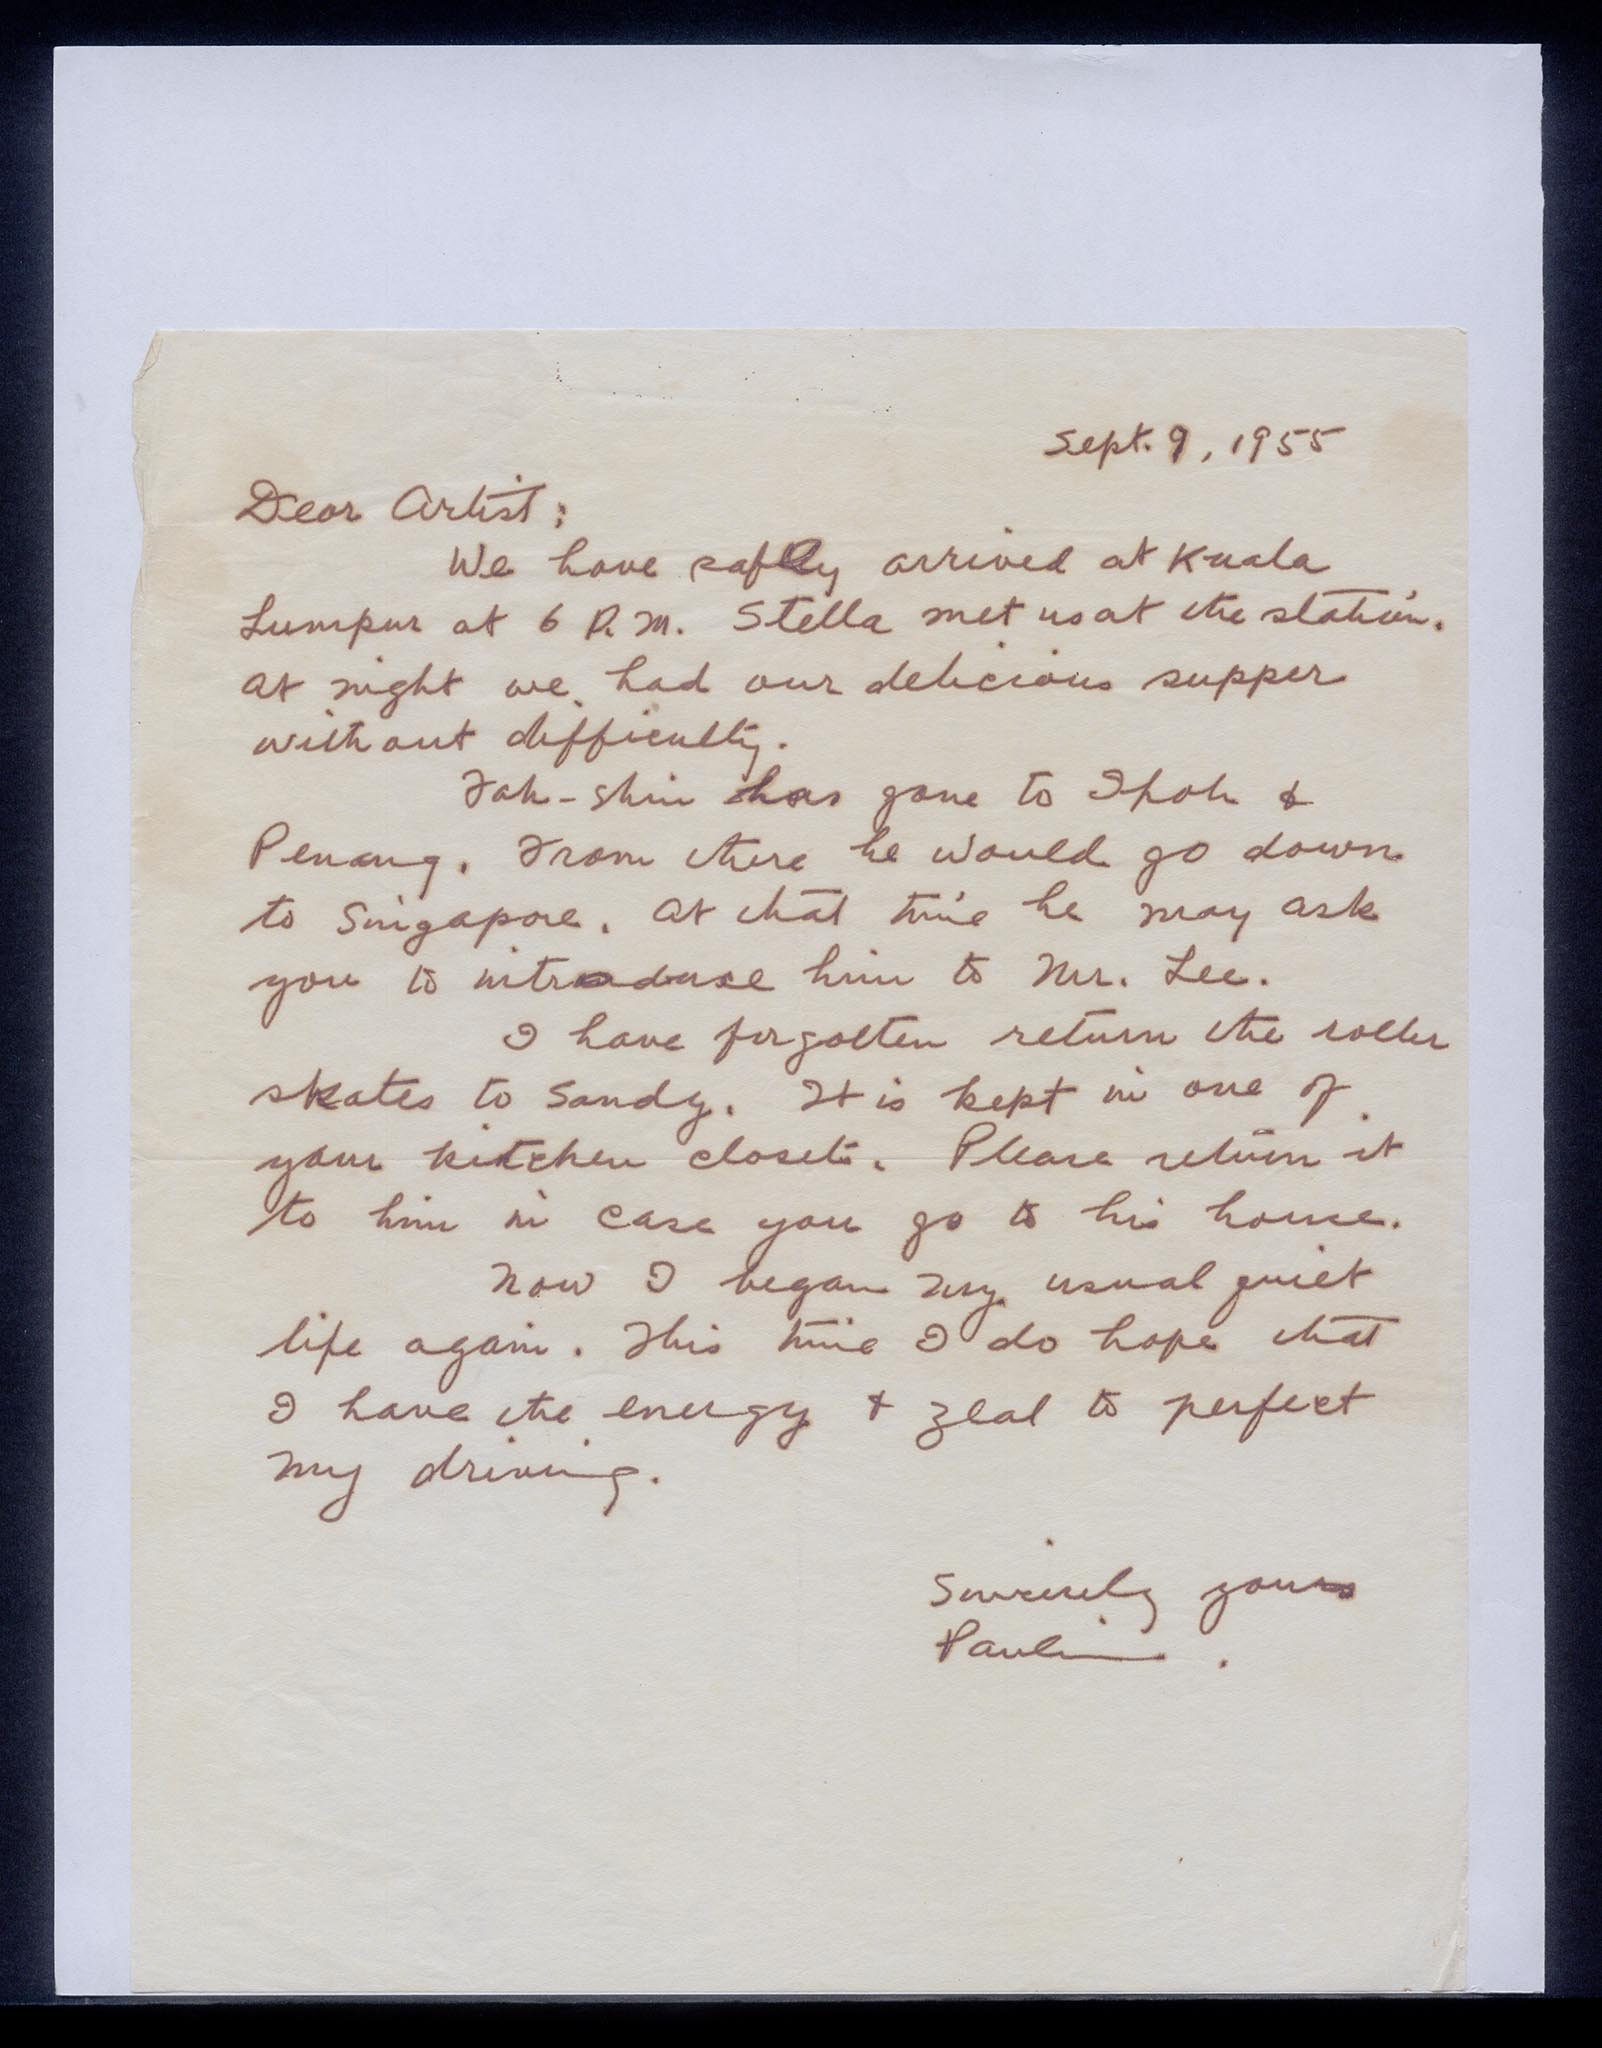 Sept. 9, 1955
Dear Artist:
We have safely arrived at Kuala
Lumpur at 6 P.M. Stella met us at the station.
At night we had our delicious supper
without difficulty.
Tah-shin has gone to Ipoh &
Penang. From there he would go down
to Singapore. At that time he may ask
you to introduce him to Mr. Lee.
I have forgotten return the roller
skates to Sandy. It is kept in one of
your kitchen closets. Please return it
to him in case you go to his house.
Now I began my usual quiet
life again. This time I do hope that
I have the energy & zeal to perfect
my driving.
Sincerely yours
Pauline.